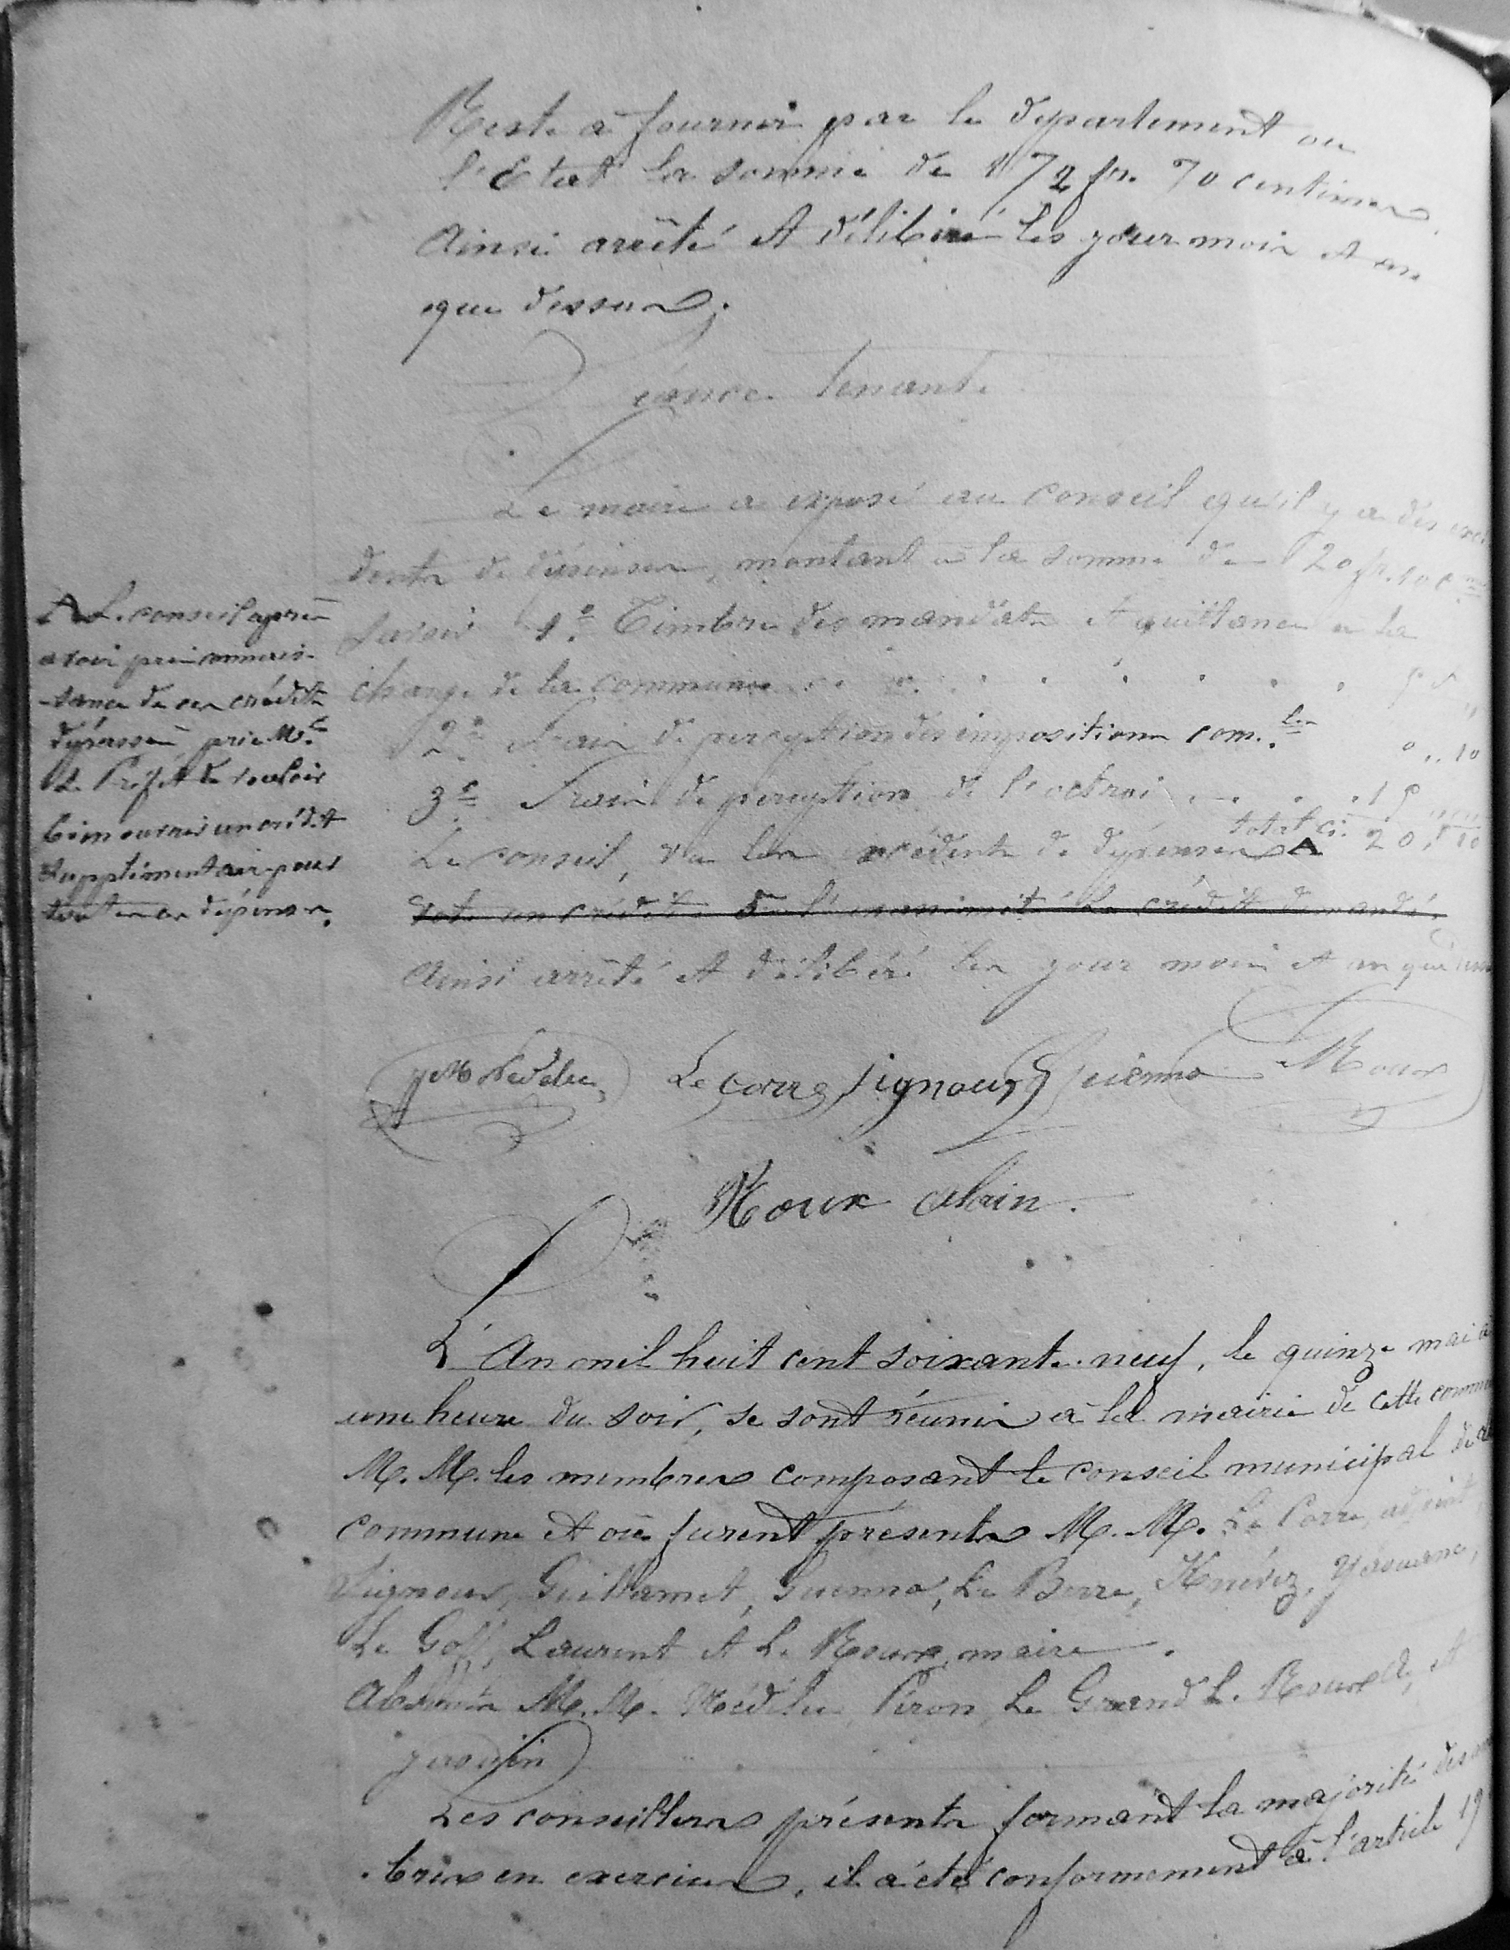 Reste à fournir par le département ou
l'Etat la somme de 172 fr. 70 centimes
Ainsi arrêté et délibéré les jour mois et an
que dessus.
Séance tenante
Le maire a exposé au conseil qu'il y a des excé
dents de dépenses, montant à la somme de 20 fr. 10 c
Savoir 1° Timbre des mandats et quittances à la
charge de la commune
2° Frais de perception des impositions com.les 0,,10
3° Frais de perception de l'octroi 15
total ci. 20,10
Le conseil, vu les excédents de dépenses A
vote un crédit à l'unanimité le crédit demandé.
Ainsi arrêté et délibéré les jour mois et an que
A Le conseil après
avoir pris connais-
sance de ces crédits
dépassés prie Mr
Le Préfet de vouloir
bien ouvrir un crédit
supplémentaire pour
toutes ces dépenses.
Nédélec Le Corre Signour Guenno Roux
Roux alain.
L'An mil huit cent soixante-neuf, le quinze mai à
une heure du soir, se sont réunis à la mairie de cette commu
M. M. les membres composant le conseil municipal de
commune et où furent présents M. M. Le Corre, adjoint,
Signour, Guillamet, Guenno, Le Berre, Knévez, Yaouanc,
Le Goff, Laurent et Le Roux, maire.
Absents M. M. Nédélec, Péron, Le Grand, Le Roux A, et
Les conseillers présents formant la majorité des
bres en exercice, il a été conformément à l'article 19